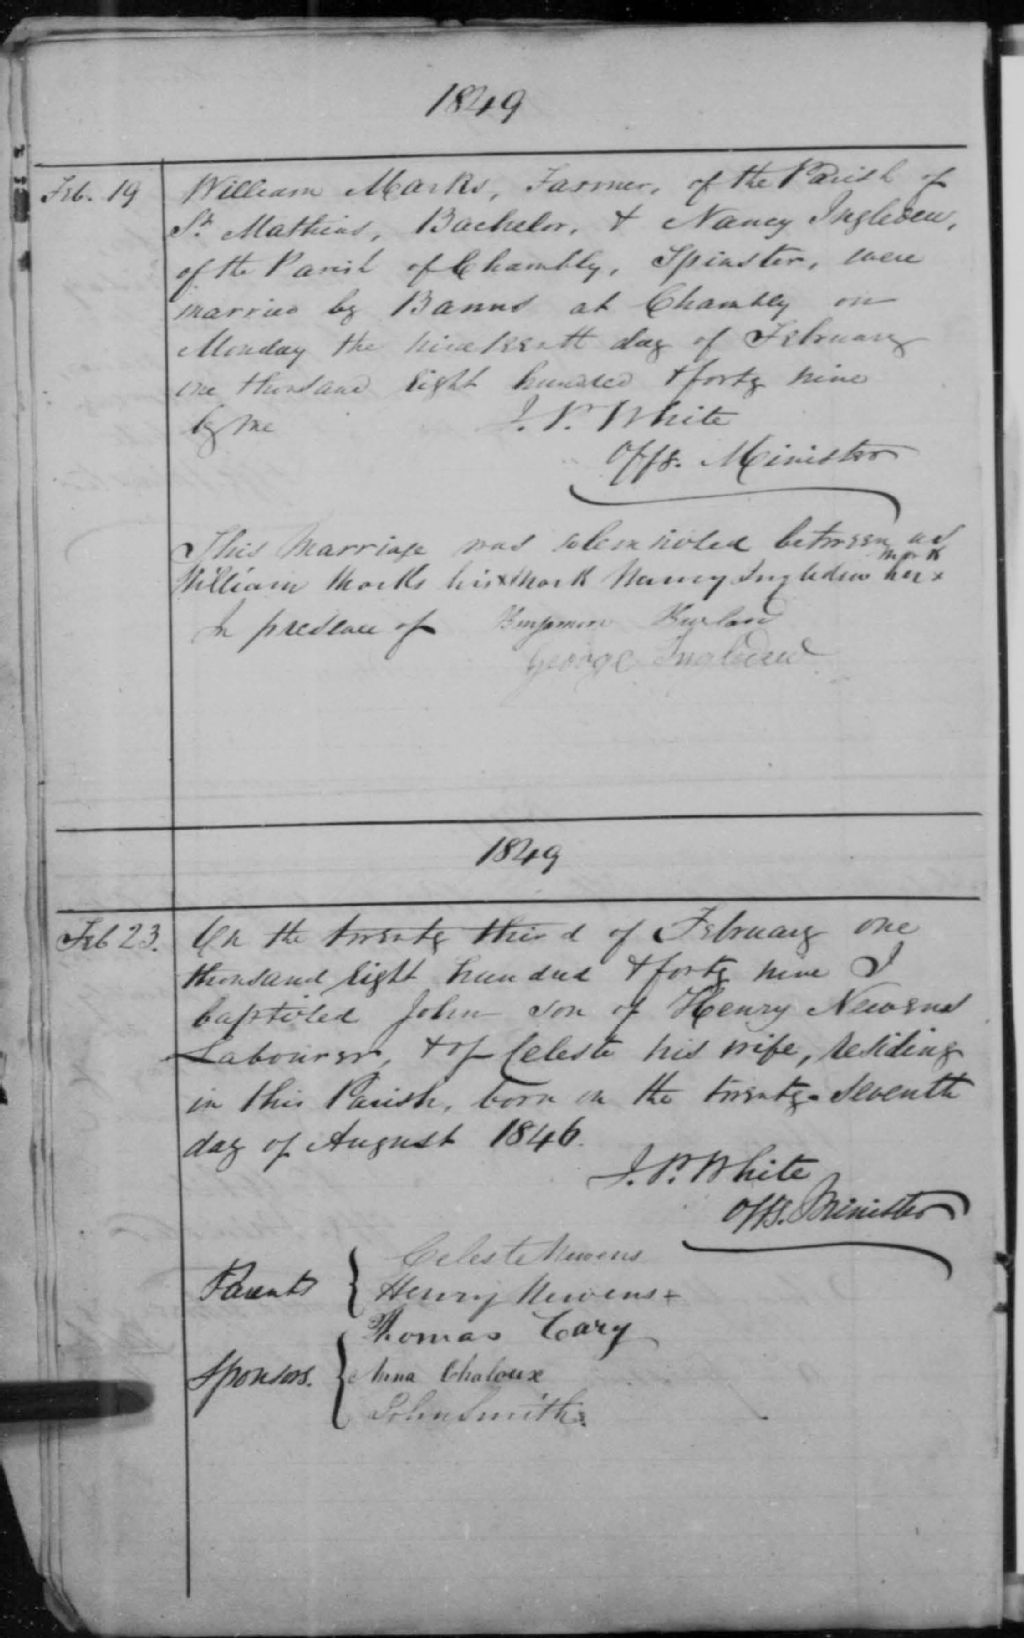 1849
Feb. 19 William Marks, Farmer, of the Parish of
St. Mathias, Bachelor, & Nancy Ingledew,
of the Parish of Chambly, Spinster, were
married by Banns at Chambly on
Monday the nineteenth day of February
one thousand eight hundred & forty nine
by me J. P. White
Offg. Minister
This Marriage was solemnized between us
William Marks his x mark Nancy Ingledew her x mark
In presence of Benjamin
George Ingledew
1849
Feb 23. On the twenty third of February one
thousand eight hundred & forty nine I
baptized John son of Henry Newens
Labourer, & of Celeste his wife, residing
in this Parish, born on the twenty-seventh
day of August 1846.
J. P. White
Offg. Minister
Parents { Celeste Newens
Henry Newens +
Sponsors. { Thomas Cary
Anna Chaloux
John Smith